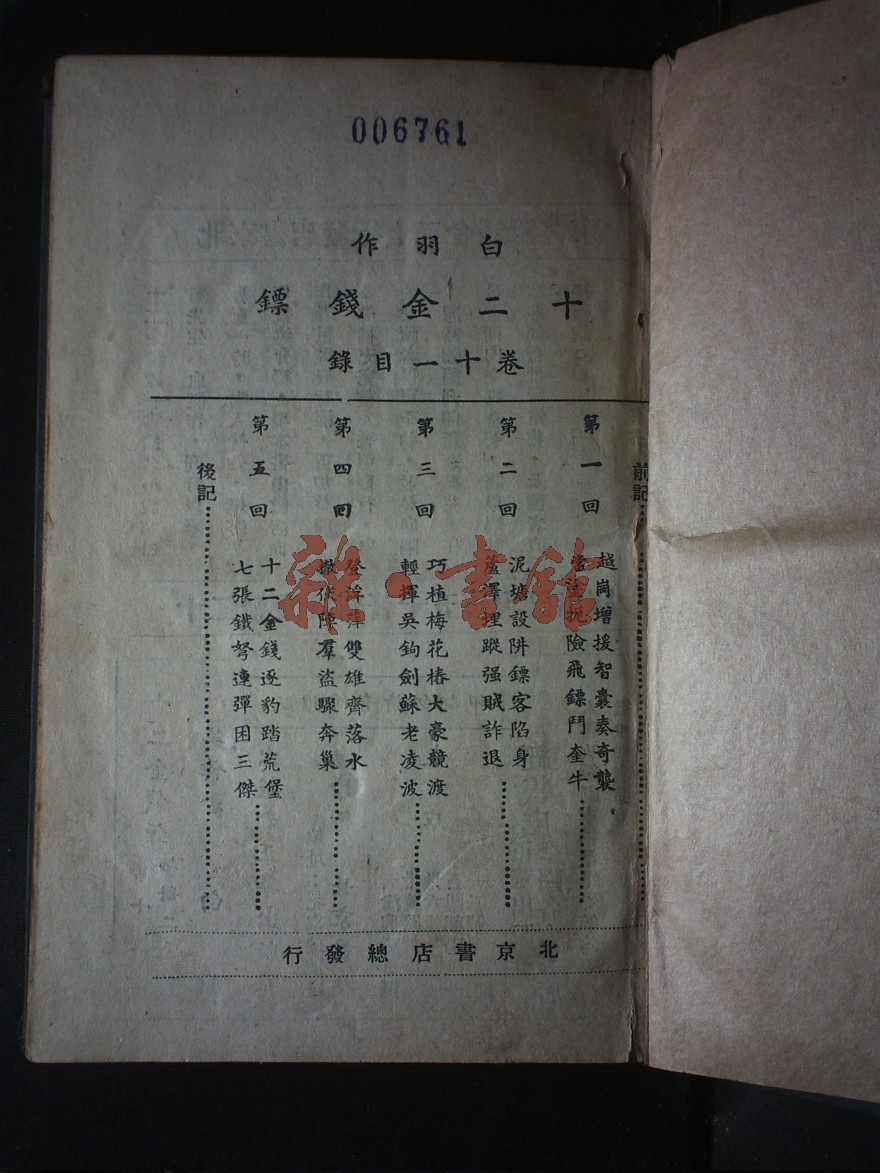 006761
白羽作
十二金錢鏢
卷十一目錄
前記
第一回
越崗增援智囊奏奇襲
扼險飛鏢鬥奎牛
第二回
泥塘設阱鏢客陷身
蘆澤埋蹤强賊詐退
第三回
巧植梅花樁大豪競渡
輕揮吳鉤劍蘇老凌波
第四回
登浮萍雙雄齊落水
撤伏陣羣盜驟奔巢
第五回
十二金錢逐豹踏荒堡
七張鐵弩連彈困三傑
後記
北京書店總發行
雜·書館